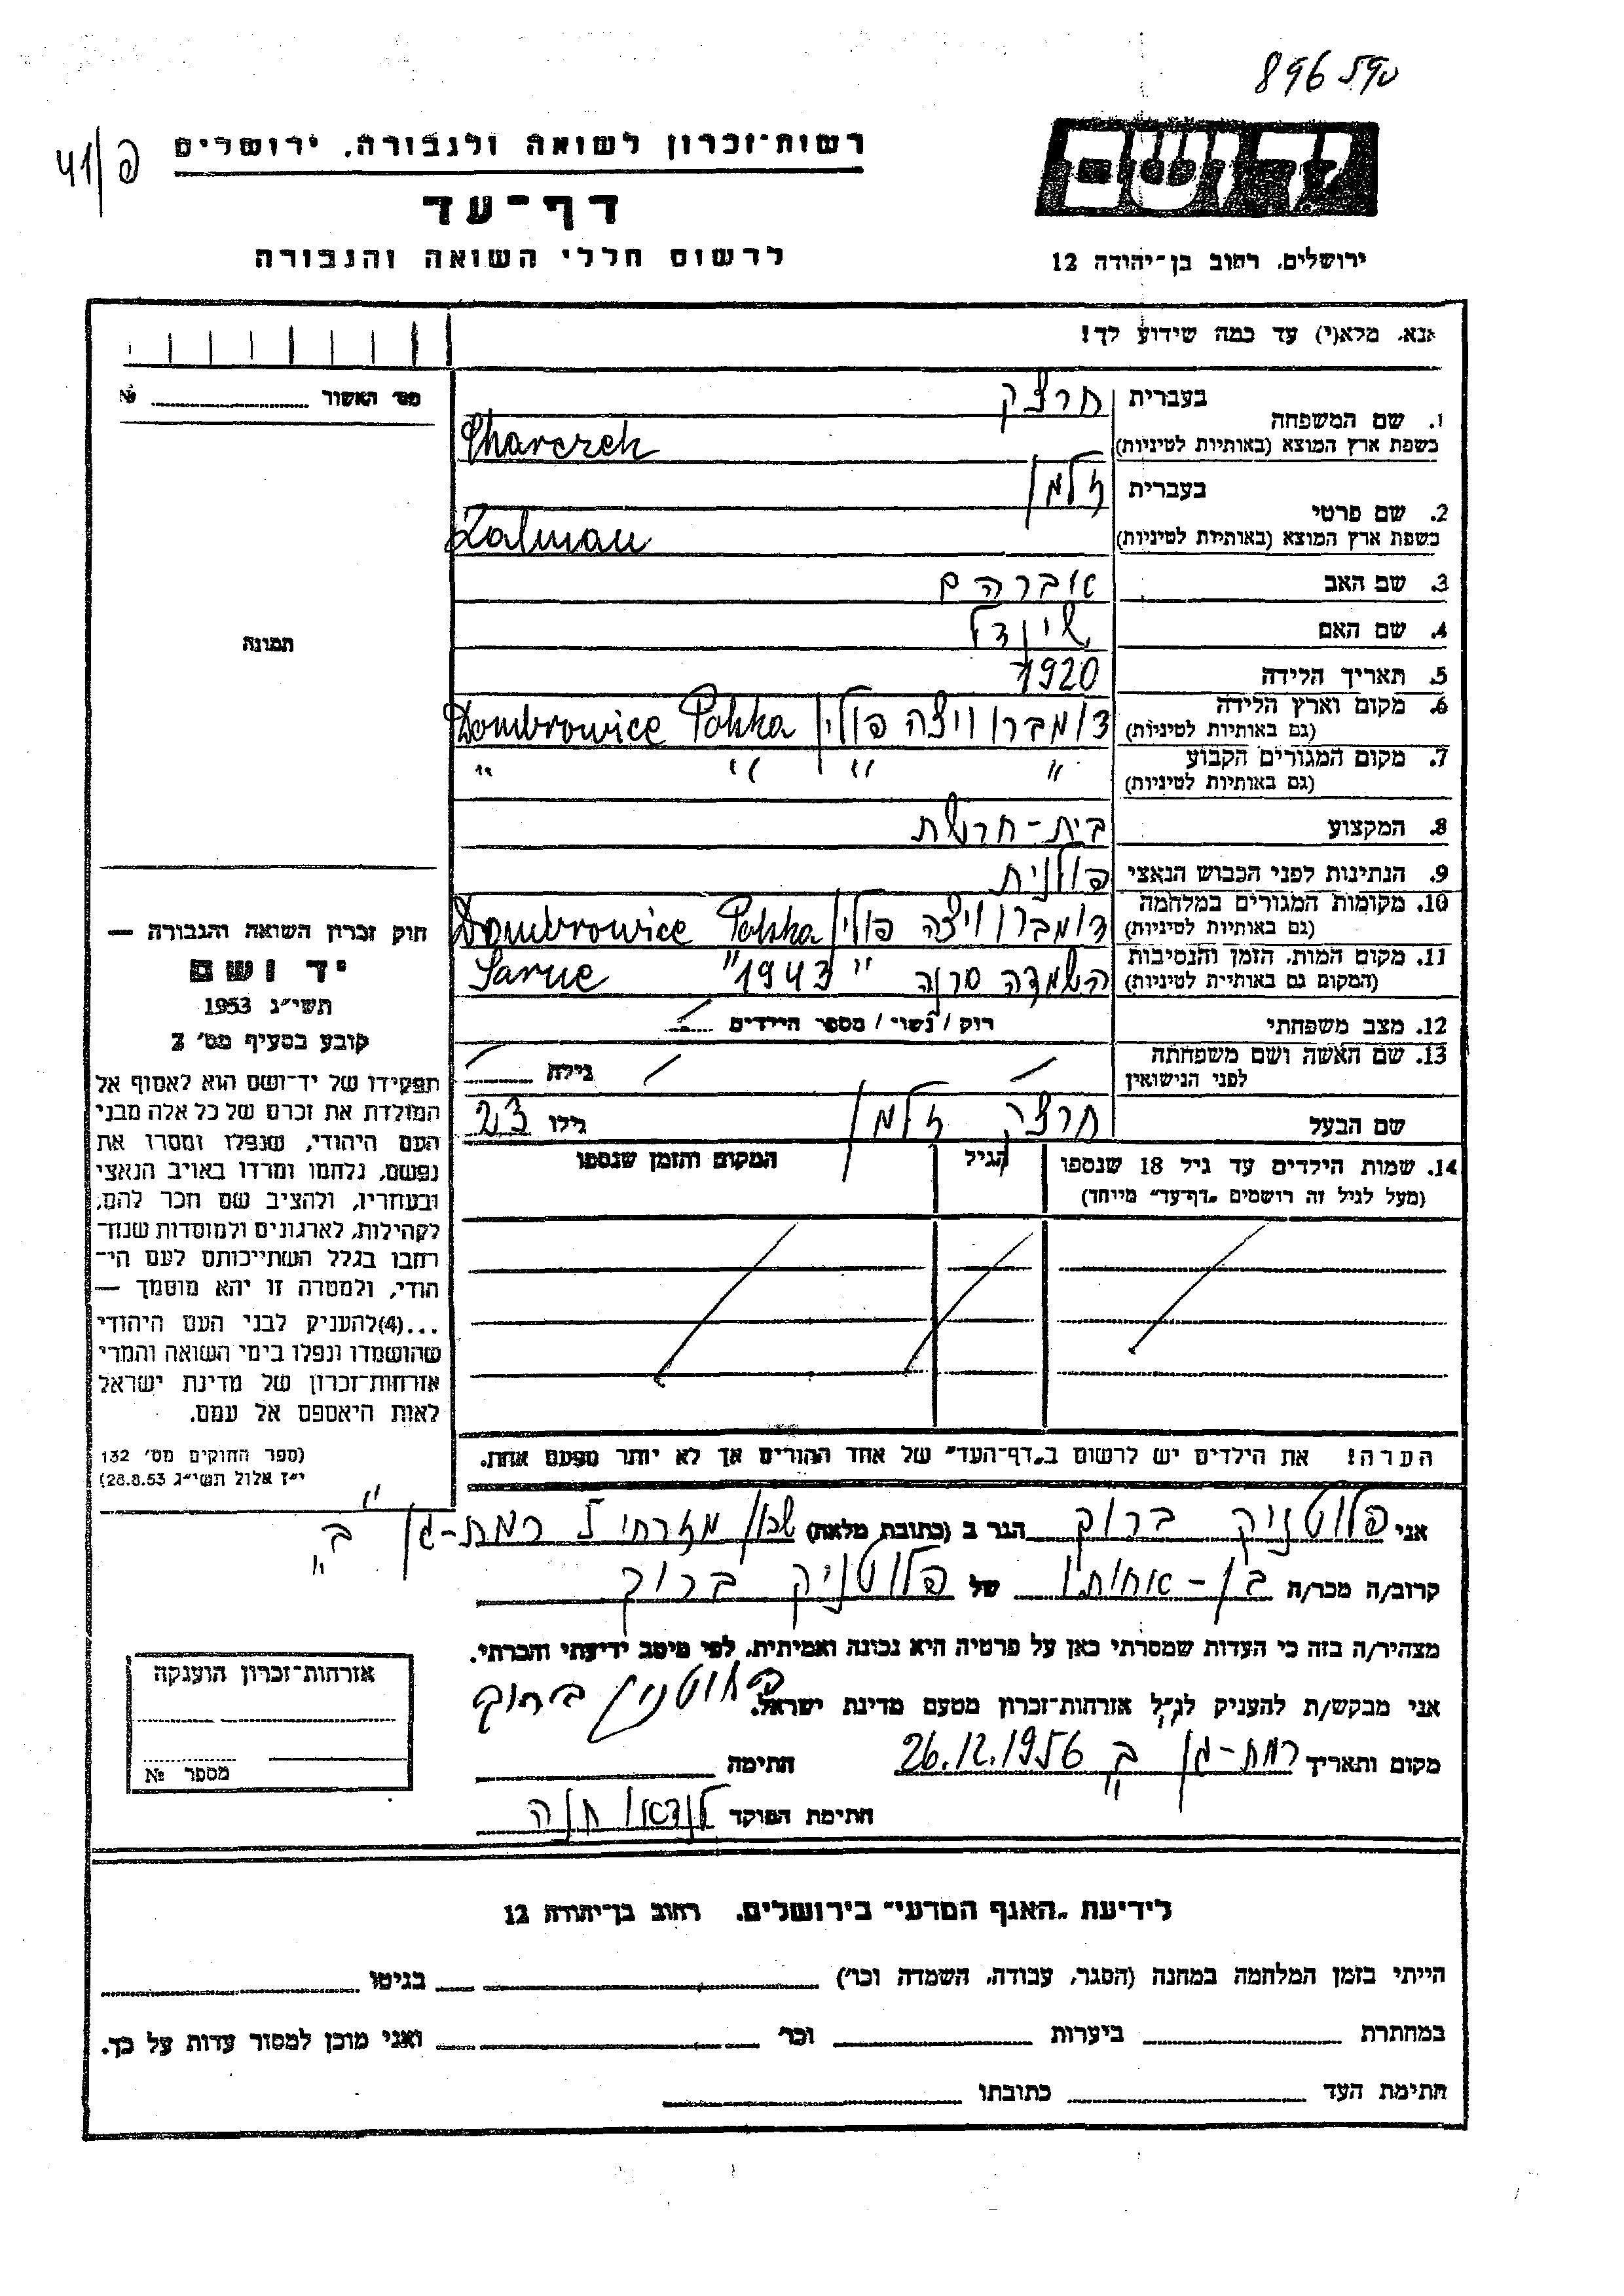 896590
41/פ
רשות־זכרון לשואה ולגבורה, ירושלים
דף־עד
לרשום חללי השואה והגבורה
יד ושם
ירושלים, רחוב בן־יהודה 12
אנא, מלא(י) עד כמה שידוע לך!
מס׳ האשור №
1. שם המשפחה
בעברית חרצק
בשפת ארץ המוצא (באותיות לטיניות) Charczek
2. שם פרטי
בעברית זלמן
בשפת ארץ המוצא (באותיות לטיניות) Zalman
3. שם האב אברהם
4. שם האם שיינדל
5. תאריך הלידה 1920
6. מקום וארץ הלידה (גם באותיות לטיניות) דומברוויצה פולין Dombrowice Polska
7. מקום המגורים הקבוע (גם באותיות לטיניות) " " " "
8. המקצוע בית-חרשת
9. הנתינות לפני הכבוש הנאצי פולנית
10. מקומות המגורים במלחמה (גם באותיות לטיניות) דומברוויצה פולין Dombrowice Polska
11. מקום המות, הזמן והנסיבות (המקום גם באותיות לטיניות) השמדה סרנה "1943" Sarne
12. מצב משפחתי רוק / נשוי / מספר הילדים
13. שם האשה ושם משפחתה לפני הנישואין גילה
שם הבעל חרצק זלמן גילו 23
14. שמות הילדים עד גיל 18 שנספו (מעל לגיל זה רושמים „דף־עד” מייחד) הגיל המקום והזמן שנספו
הערה! את הילדים יש לרשום ב„דף־העד” של אחד ההורים אך לא יותר מפעם אחת.
תמונה
חוק זכרון השואה והגבורה —
יד ושם
תשי״ג 1953
קובע בסעיף מס׳ 2
תפקידו של יד־ושם הוא לאסוף אל
המולדת את זכרם של כל אלה מבני
העם היהודי, שנפלו ומסרו את
נפשם, נלחמו ומרדו באויב הנאצי
ובעוזריו, ולהציב שם וזכר להם,
לקהילות, לארגונים ולמוסדות שנח־
רבו בגלל השתייכותם לעם הי־
הודי, ולמטרה זו יהא מוסמך —
...(4)להעניק לבני העם היהודי
שהושמדו ונפלו בימי השואה והמרי
אזרחות־זכרון של מדינת ישראל
לאות היאספם אל עמם.
(ספר החוקים מס׳ 132
י״ז אלול תשי״ג 28.8.53)
אני פלוטניק ברוך הגר ב (כתובת מלאה) שכון מזרחי 7 רמת-גן ב'
קרוב/ה מכר/ה בן-אחותו של פלוטניק ברוך
מצהיר/ה בזה כי העדות שמסרתי כאן על פרטיה היא נכונה ואמיתית, לפי מיטב ידיעתי והכרתי.
אני מבקש/ת להעניק לנ״ל אזרחות־זכרון מטעם מדינת ישראל. פלוטניק ברוך
מקום ותאריך רמת-גן ב 26.12.1956 חתימה
חתימת הפוקד לנדאו חנה
אזרחות־זכרון הוענקה
מספר №
לידיעת „האגף המדעי” בירושלים, רחוב בן־יהודה 12
הייתי בזמן המלחמה במחנה (הסגר, עבודה, השמדה וכו׳) בגיטו
במחתרת ביערות וכו׳ ואני מוכן למסור עדות על כך.
חתימת העד כתובתו